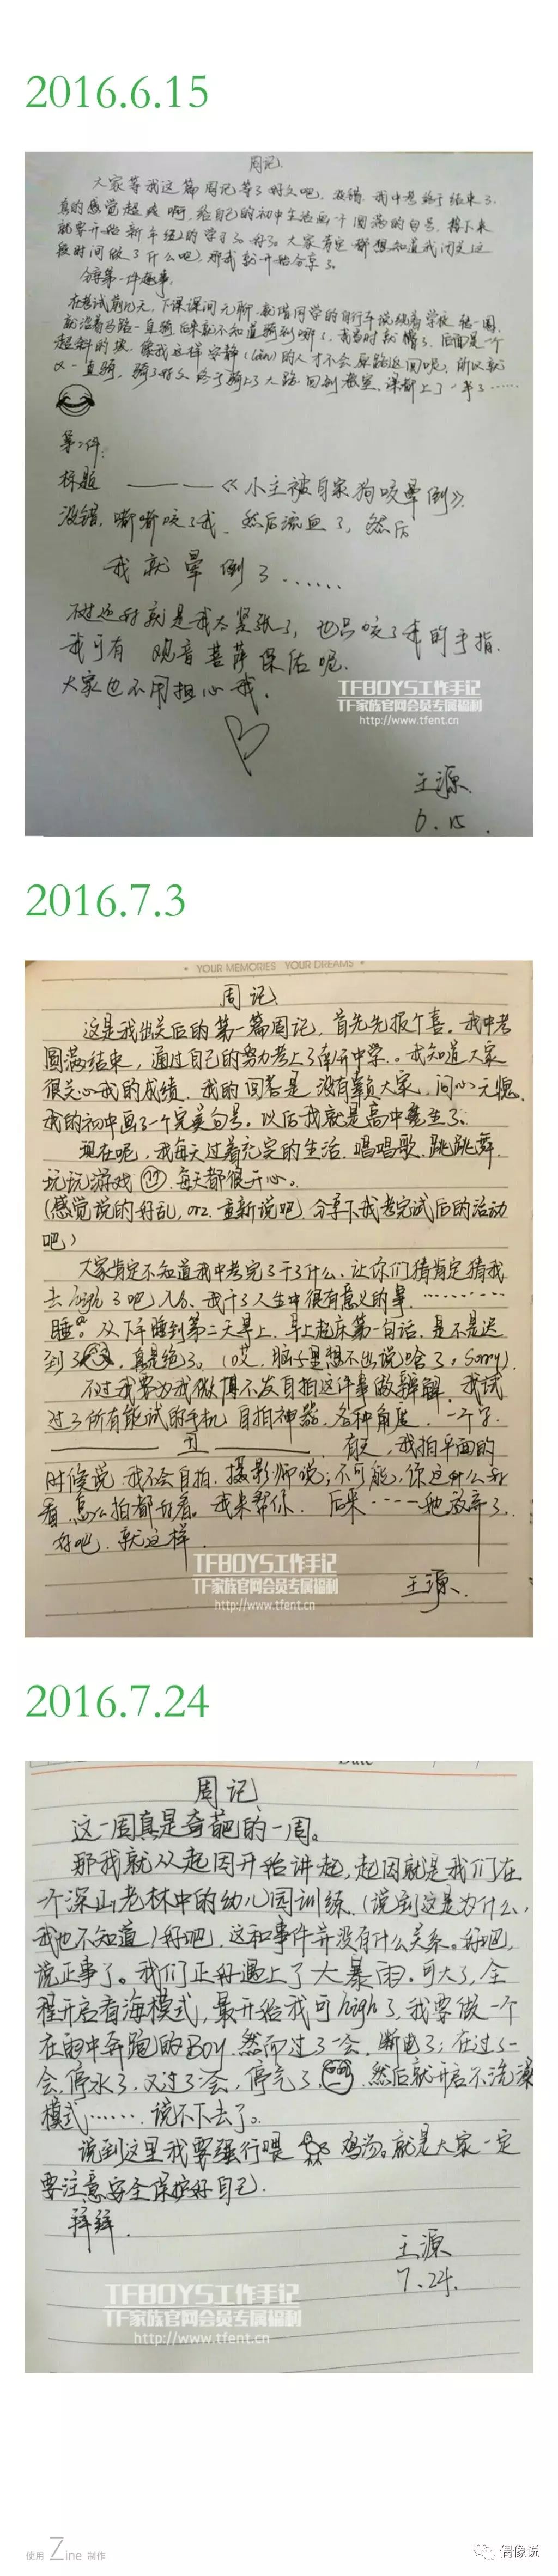 2016.6.15
周记
大家等我这篇周记等了好久吧,没错,我中考终于结束了.
真的感觉超爽啊,给自己的初中生活画一个圆满的句号,接下来
就要开始新年级的学习了。好了。大家肯定都想知道我闭关这
段时间做了什么吧,那我就开始分享了。
分享第一件趣事,
在考试前几天,下课课间无聊,就借同学的自行车说绕着学校骑一圈,
就沿着马路一直骑后来就不知道骑到哪了,我当时就懵了,后面是一个
超斜的坡,像我这样安静(lan)的人才不会原路返回呢,所以就
又一直骑,骑了好久终于骑上了大路.回到教室,课都上了一半了……
第二件:
标题 ———《小主被自家狗咬晕倒》.
没错,嘟嘟咬了我、然后流血了,然后
我就晕倒了……
不过还好就是我太紧张了,也只咬了我的手指.
我可有观音菩萨保佑呢.
大家也不用担心我.
TFBOYS工作手记
TF家族官网会员专属福利
http://www.tfent.cn
王源.
6.15.
2016.7.3
* YOUR MEMORIES YOUR DREAMS *
周记
这是我出关后的第一篇周记,首先先报个喜。我中考
圆满结束,通过自己的努力考上了南开中学。我知道大家
很关心我的成绩.我的回答是 没有辜负大家,问心无愧.
我的初中画了一个完美句号。以后我就是高中生了。
现在呢,我每天过着充实的生活.唱唱歌.跳跳舞.
玩玩游戏 每天都很开心。
(感觉说的好乱,orz.重新说吧.分享下我考完试后的活动
吧)
大家肯定不知道我中考完了干了什么、让你们猜肯定猜我
去high了吧,No、我干了人生中很有意义的事…………
睡。从下午睡到第二天早上.早上起床第一句话,是不是迟
到了,真是绝了。(哎,脑子里想不出说啥了。Sorry).
不过我要为我微博不发自拍这件事做辩解.我试
过了所有能试的手机.自拍神器.各种角度.一个字.
———— 丑 ————.有天,我拍平面的
时候说.我不会自拍.摄影师说:不可能,你这么好
看,怎么拍都好看。我来帮你.后来····他放弃了.
好吧.就这样.
TFBOYS工作手记
TF家族官网会员专属福利
http://www.tfent.cn
王源.
2016.7.24
Date
周记
这一周真是奇葩的一周。
那我就从起因开始讲起,起因就是我们在
一个深山老林中的幼儿园训练.(说到这是为什么,
我也不知道)好吧.这和事件并没有什么关系。好吧,
说正事了。我们正好遇上了大暴雨.可大了,全
程开启看海模式,最开始我可high了.我要做一个
在雨中奔跑的Boy.然而过了一会.断电了;在过了一
会,停水了.又过了会,停气了.然后就开启不洗澡
模式……. 说不下去了。
说到这里我要强行喂 鸡汤。就是大家一定
要注意安全保护好自己.
拜拜.
王源
7.24.
TFBOYS工作手记
TF家族官网会员专属福利
http://www.tfent.cn
使用 Zine 制作
偶像说